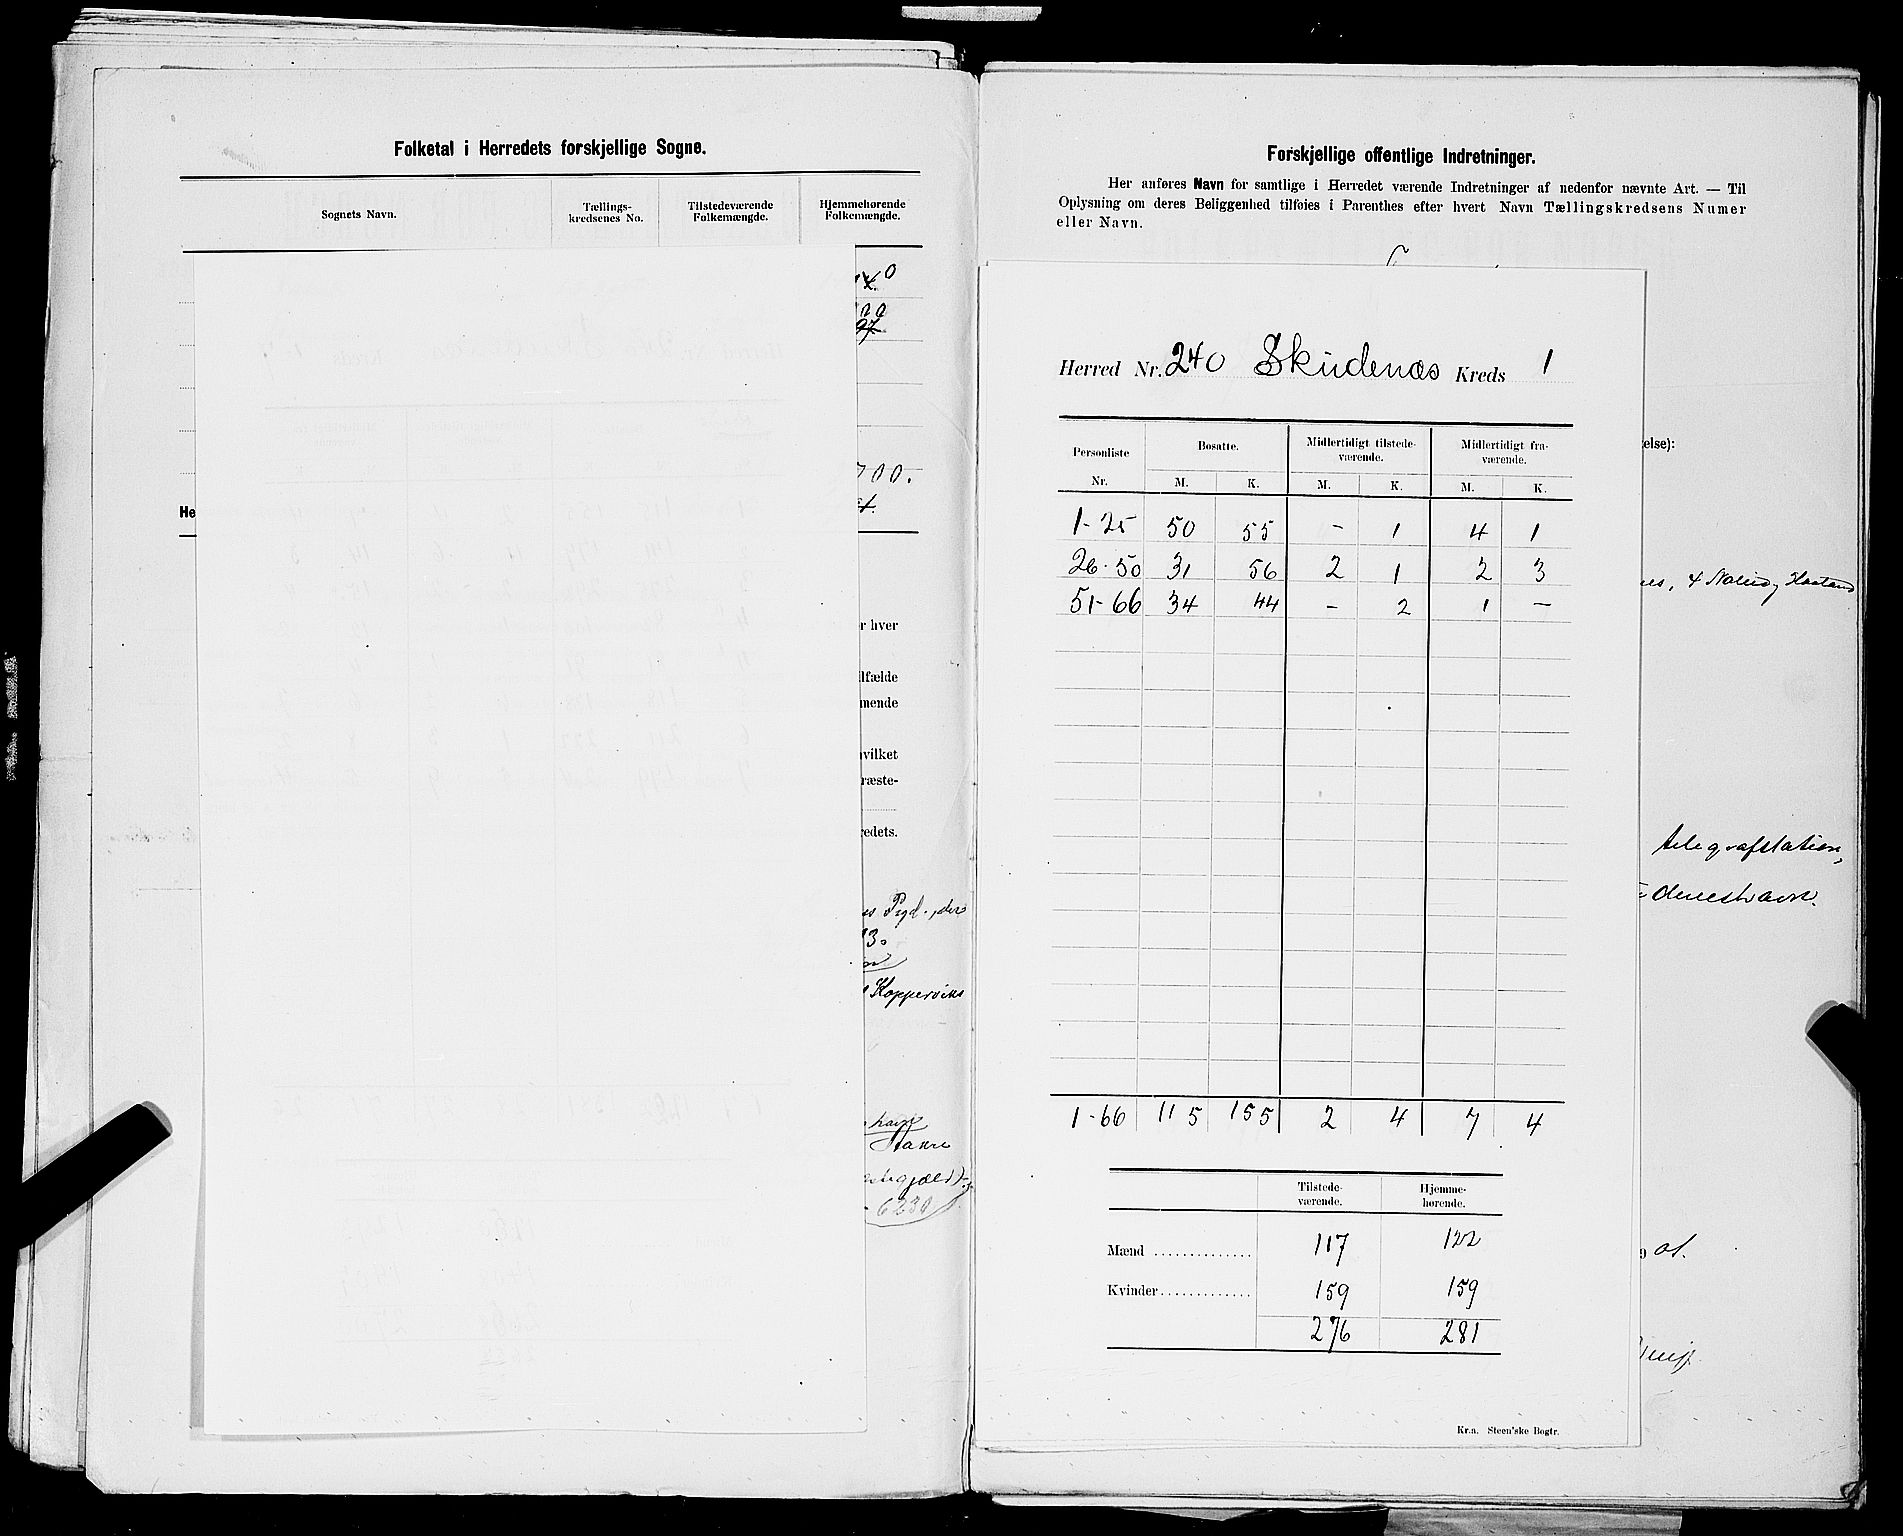 Folketal i Herredets forskjellige Sogne.
Sognets Navn. Tællings-kredsenes No. Tilstedeværende Folkemængde. Hjemmehørende Folkemængde.
700.
He
r hver
lfælde
mende
vilket
ræste-
redets.
Kopperviks
6230
Forskjellige offentlige Indretninger.
Her anføres Navn for samtlige i Herredet værende Indretninger af nedenfor nævnte Art. — Til
Oplysning om deres Beliggenhed tilføies i Parenthes efter hvert Navn Tællingskredsens Numer
eller Navn.
Herred Nr. 240 Skudenæs Kreds 1
Personliste Nr. Bosatte. Midlertidigt tilstede-værende. Midlertidigt fra-værende.
M. K. M. K. M. K.
1-25 50 55 - 1 4 1
26-50 31 56 2 1 2 3
51-66 34 44 - 2 1 -
1-66 115 155 2 4 7 4
Tilstede-værende. Hjemme-hørende.
Mænd .............. 117 122
Kvinder............. 159 159
276 281
Kr.a. Steen'ske Bogtr.
else):
telegrafstation,
deneshavn.